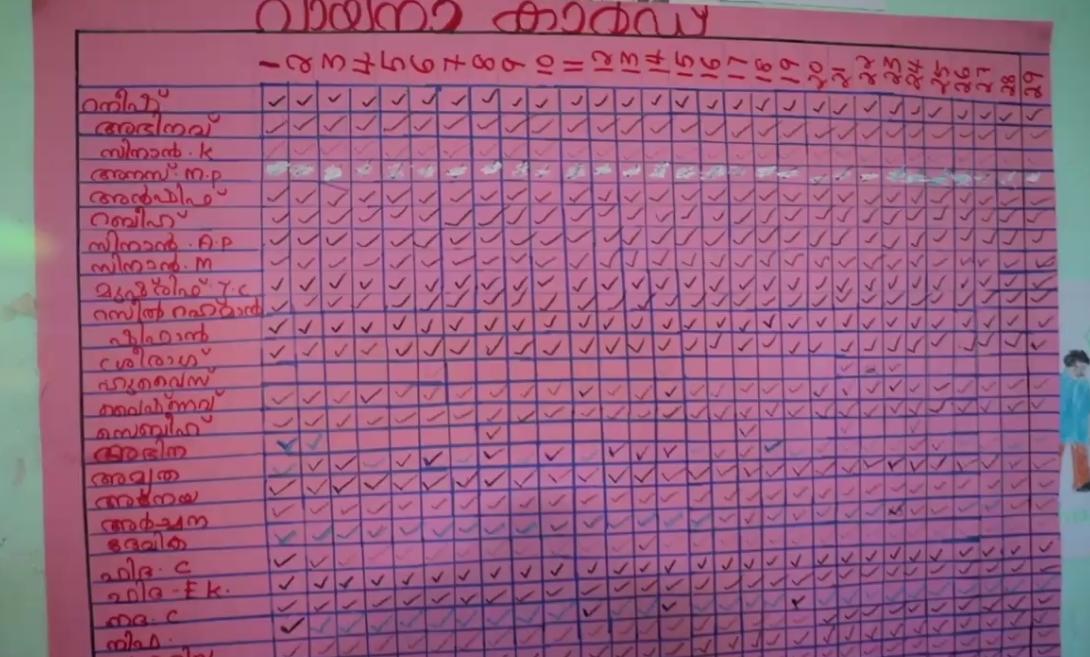 വായനാ കാർഡ്
1 2 3 4 5 6 7 8 9 10 11 12 13 14 15 16 17 18 19 20 21 22 23 24 25 26 27 28 29
റനീഫ്
അഭിനവ്
സിനാൻ.K
അനസ്.M.P
അൻഫിഫ്
റബീഹ്
സിനാൻ.A.P
സിനാൻ.M
റസീൽ റഹ്മാൻ
ഷിഹാൻ
ശ്രീരാഗ്
ഹുവൈസ്
വൈഷ്ണവ്
സെബീഹ്
അഭിന
അമൃത
അനന്യ
അർച്ചന
ദേവിക
ഹിദ.C
ഹിദ.E K.
നദ.C
നിഹ.